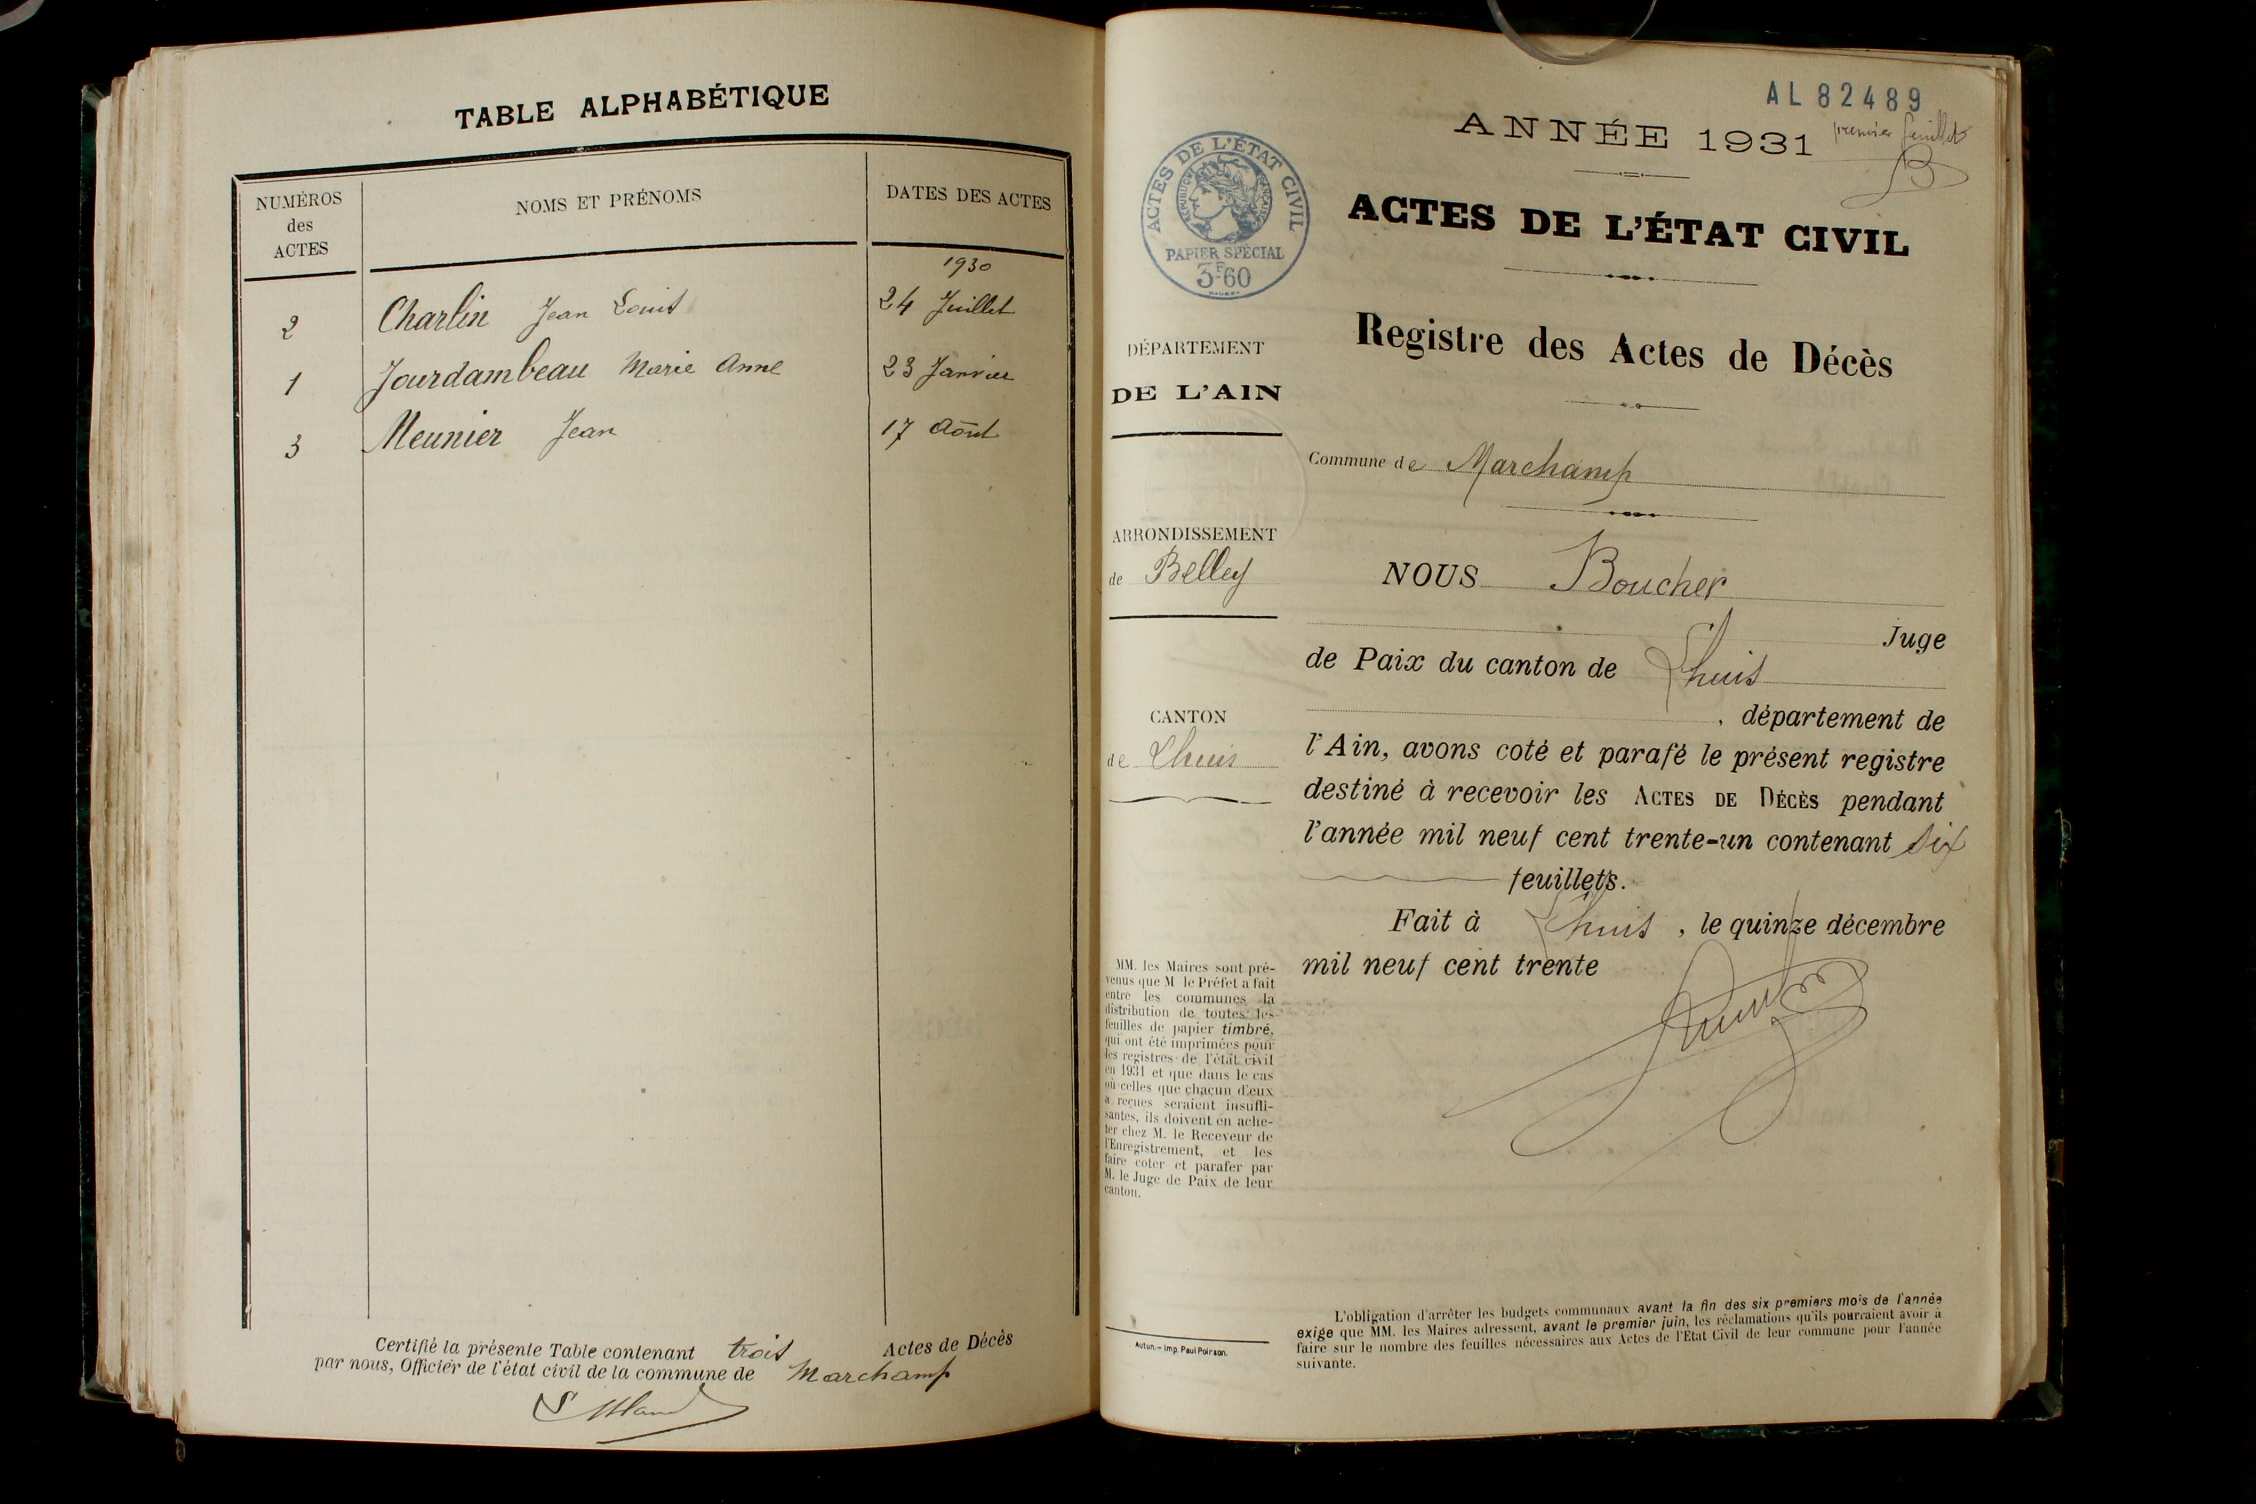 TABLE ALPHABÉTIQUE
NUMÉROS
des
ACTES
NOMS ET PRÉNOMS
DATES DES ACTES
1930
2 Charlin Jean Louis 24 Juillet
1 Jourdambeau Marie Anne 23 Janvier
3 Meunier Jean 17 Août
Certifié la présente Table contenant trois Actes de Décès
par nous, Officier de l'état civil de la commune de Marchamp
AL 82489
ANNÉE 1931
premier feuillet
B
ACTES DE L'ÉTAT CIVIL
RÉPUBLIQUE FRANÇAISE
PAPIER SPÉCIAL
3F60
ACTES DE L'ÉTAT CIVIL
Registre des Actes de Décès
DÉPARTEMENT
DE L'AIN
Commune de Marchamp
ARRONDISSEMENT
de Belley
CANTON
de Lhuis
NOUS Boucher
Juge
de Paix du canton de Lhuis
, département de
l'Ain, avons coté et parafé le présent registre
destiné à recevoir les ACTES DE DÉCÈS pendant
l'année mil neuf cent trente-un contenant six
feuillets.
Fait à Lhuis, le quinze décembre
mil neuf cent trente
MM. les Maires sont pré-
venus que M le Préfet a fait
entre les communes la
distribution de toutes les
feuilles de papier timbré,
qui ont été imprimées pour
les registres de l'état civil
en 1931 et que dans le cas
où celles que chacun d'eux
a reçues seraient insuffi-
santes, ils doivent en ache-
ter chez M. le Receveur de
l'Enregistrement, et les
faire coter et parafer par
M. le Juge de Paix de leur
canton.
Autun.- Imp. Paul Poirson.
L'obligation d'arrêter les budgets communaux avant la fin des six premiers mois de l'année
exige que MM. les Maires adressent, avant le premier juin, les réclamations qu'ils pourraient avoir à
faire sur le nombre des feuilles nécessaires aux Actes de l'Etat Civil de leur commune pour l'année
suivante.